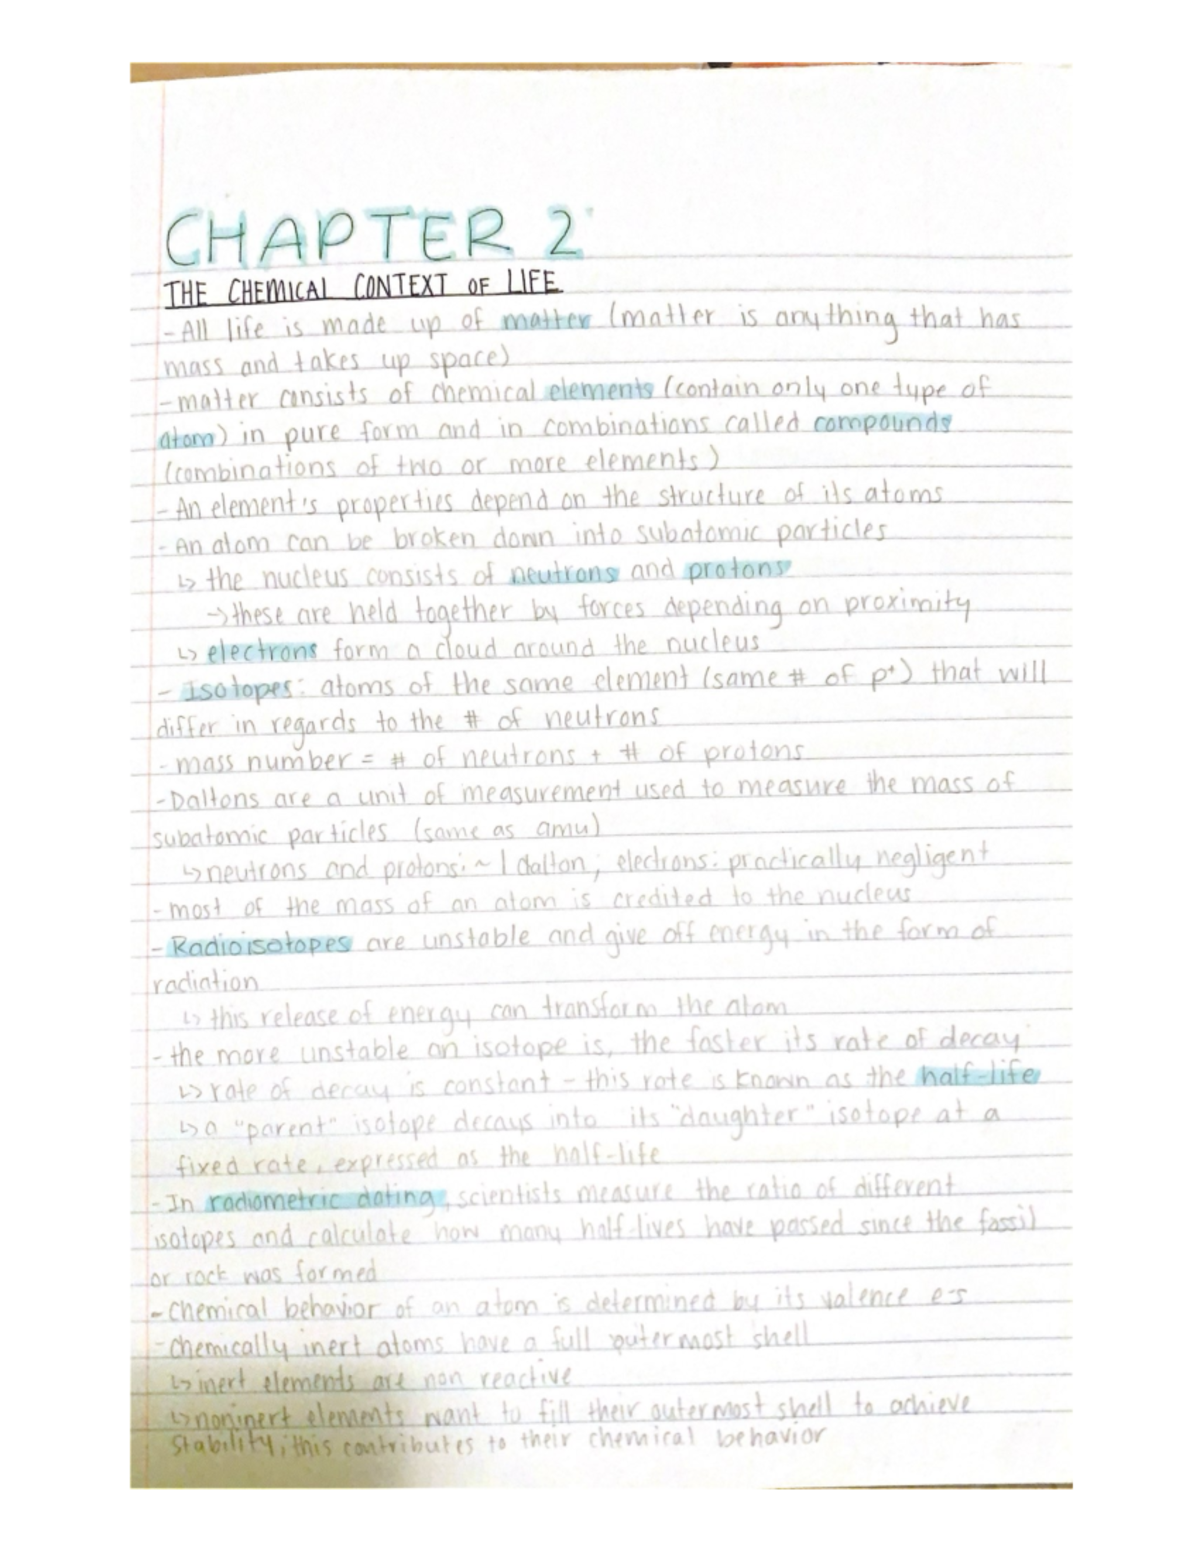 CHAPTER 2
THE CHEMICAL CONTEXT OF LIFE
- All life is made up of matter (matter is anything that has
mass and takes up space)
- matter consists of chemical elements (contain only one type of
atom) in pure form and in combinations called compounds
(combinations of two or more elements)
- An element's properties depend on the structure of its atoms
- An atom can be broken down into subatomic particles
↳ the nucleus consists of neutrons and protons
→ these are held together by forces depending on proximity
↳ electrons form a cloud around the nucleus
- Isotopes: atoms of the same element (same # of p⁺) that will
differ in regards to the # of neutrons
- mass number = # of neutrons + # of protons
- Daltons are a unit of measurement used to measure the mass of
subatomic particles (same as amu)
↳ neutrons and protons: ~ 1 dalton; electrons: practically negligent
- most of the mass of an atom is credited to the nucleus
- Radioisotopes are unstable and give off energy in the form of
radiation
↳ this release of energy can transform the atom
- the more unstable an isotope is, the faster its rate of decay
↳ rate of decay is constant - this rate is known as the half-life
↳ a "parent" isotope decays into its "daughter" isotope at a
fixed rate, expressed as the half-life
- In radiometric dating, scientists measure the ratio of different
isotopes and calculate how many half-lives have passed since the fossil
or rock was formed
- Chemical behavior of an atom is determined by its valence e-s
- Chemically inert atoms have a full outermost shell
↳ inert elements are non reactive
↳ noninert elements want to fill their outermost shell to achieve
stability; this contributes to their chemical behavior